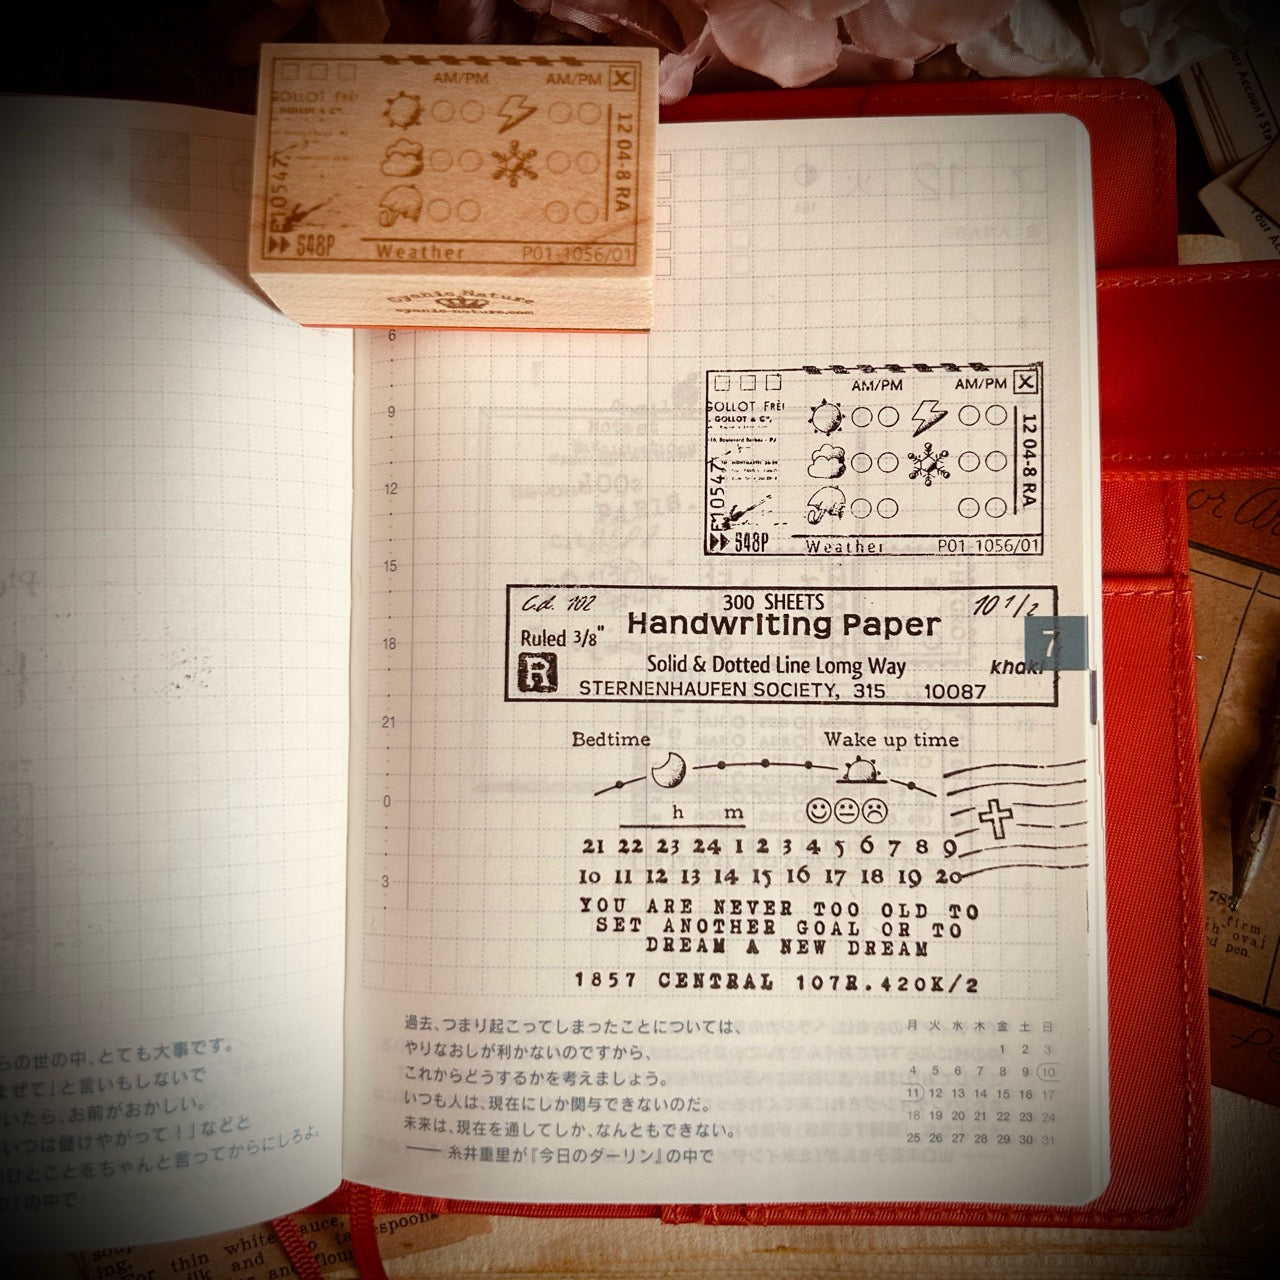 AM/PM AM/PM
GOLLOT FRÈ
GOLLOT & Cº,
12 04-8 RA
E10547
S48P
Weather
P01-1056/01
Cyanic Nature
cyanic-nature.com
6
9
12
15
18
21
0
3
AM/PM AM/PM
GOLLOT FRÈ
GOLLOT & Cº,
12 04-8 RA
E10547
S48P
Weather
P01-1056/01
Cd. 102
300 SHEETS
10 1/2
Ruled 3/8"
Handwriting Paper
R
Solid & Dotted Line Lomg Way
khaki
STERNENHAUFEN SOCIETY, 315 10087
7
Bedtime
Wake up time
h m
21 22 23 24 1 2 3 4 5 6 7 8 9
10 11 12 13 14 15 16 17 18 19 20
YOU ARE NEVER TOO OLD TO
SET ANOTHER GOAL OR TO
DREAM A NEW DREAM
1857 CENTRAL 107R.420K/2
過去、つまり起こってしまったことについては、
やりなおしが利かないのですから、
これからどうするかを考えましょう。
いつも人は、現在にしか関与できないのだ。
未来は、現在を通してしか、なんともできない。
—— 糸井重里が『今日のダーリン』の中で
月 火 水 木 金 土 日
1 2 3
4 5 6 7 8 9 10
11 12 13 14 15 16 17
18 19 20 21 22 23 24
25 26 27 28 29 30 31
らの世の中、とても大事です。
ませて」と言いもしないで
いたら、お前がおかしい。
いつは儲けやがって！」などと
のひとことをちゃんと言ってからにしろよ。
の中で
For thin white sauce,